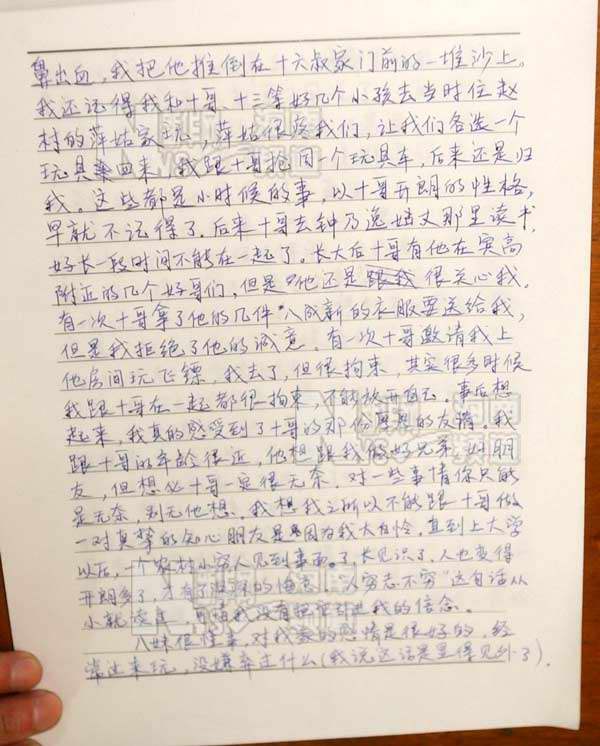 鼻出血，我把他推倒在十六叔家门前的一堆沙上。
我还记得我和十哥、十三等好几个小孩去当时住赵
村的萍姑家玩，萍姑很疼我们，让我们各选一个
玩具回来，我跟十哥抢同一个玩具车，后来还是归
我。这些都是小时候的事，以十哥开朗的性格，
早就不记得了。后来十哥去钟乃逸姑丈那里读书，
好长一段时间不能在一起了。长大后十哥有他在实高
附近的几个好哥们，但是他还是跟我很关心我。
有一次十哥拿了他的几件八成新的衣服要送给我，
但是我拒绝了他的诚意。有一次十哥邀请我上
他房间玩飞镖，我去了，但很拘束，其实很多时候
我跟十哥在一起都很拘束，不能放开自己。事后想
起来，我真的感受到了十哥的那份厚重的友谊。我
跟十哥的年龄很近，他想跟我做好兄弟、好朋
友，但想必十哥一定很无奈，对一些事情你只能
是无奈，别无他想。我想我之所以不能跟十哥做
一对真挚的知心朋友是因为我太自怜。直到上大学
以后，一个农村小穷人见到事面了，长见识了，人也变得
开朗多了，才有了深深的悔意。“人穷志不穷”这句话从
小就读过，可惜我没有把它引进我的信念。
八妹很懂事，对我家的感情是很好的，经
常过来玩，没嫌弃过什么（我说这话是显得见外了）。